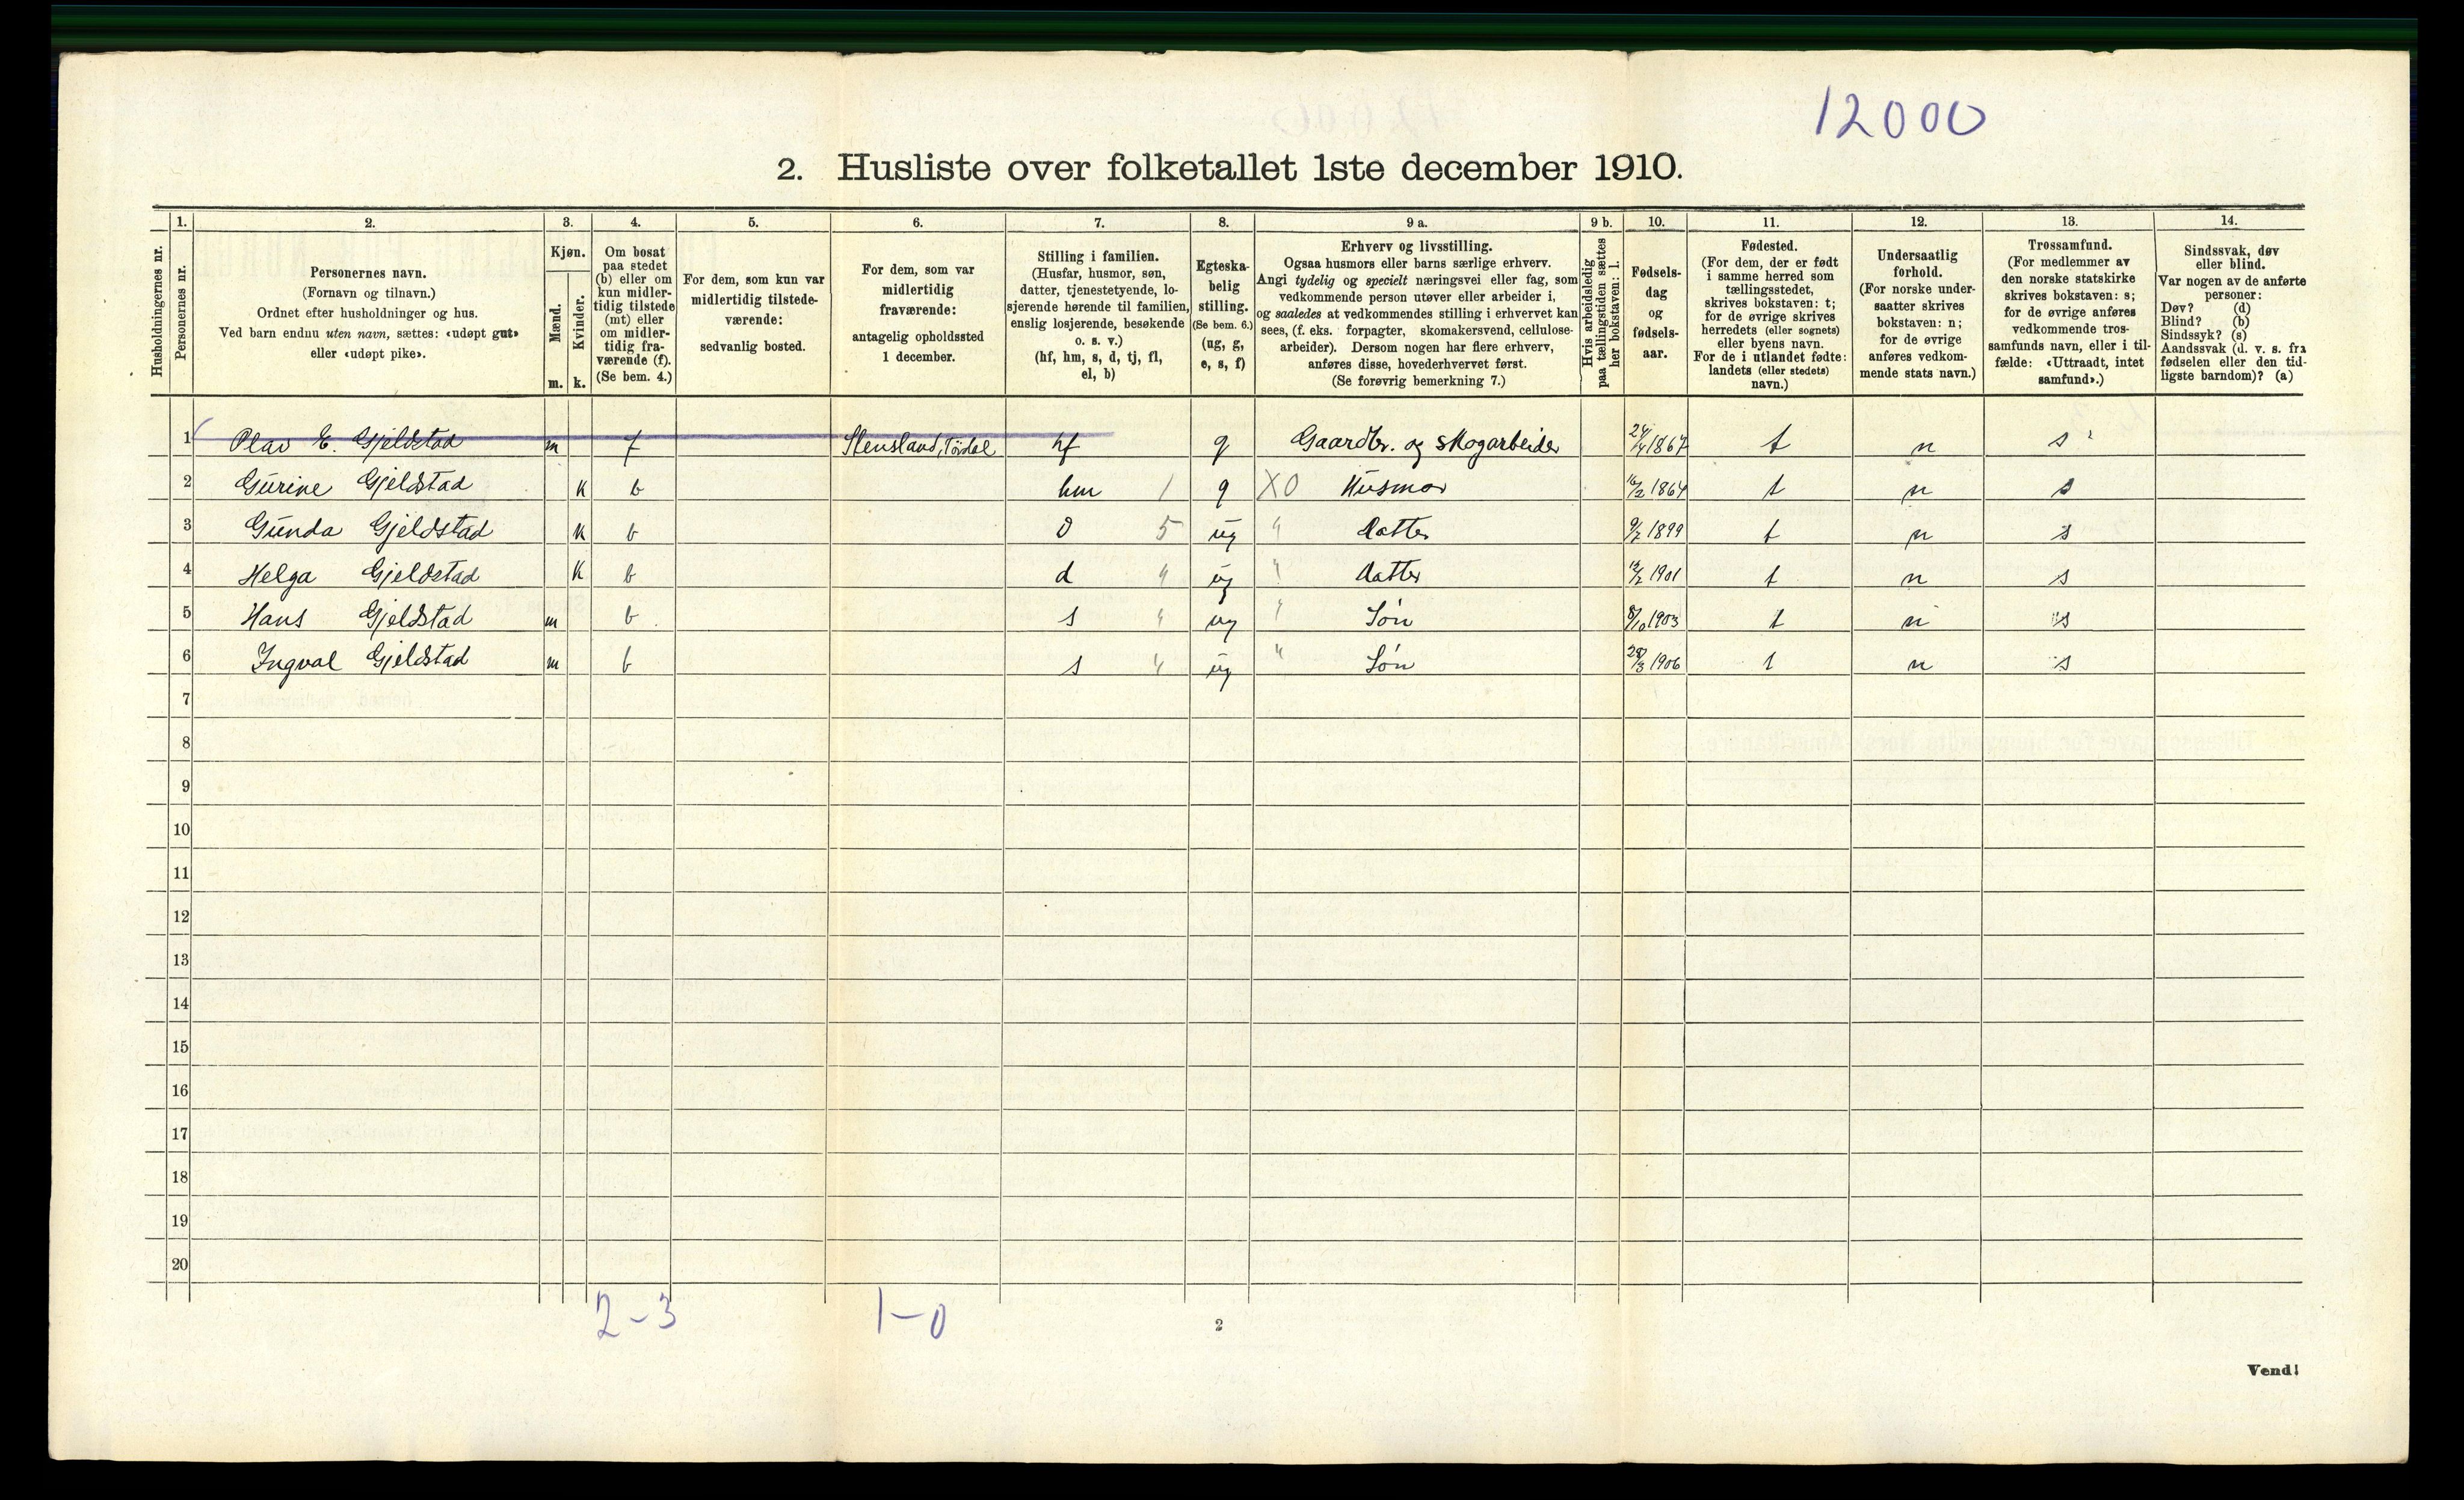 12000
2. Husliste over folketallet 1ste december 1910.
Husholdningernes nr.
1.
Personernes nr.
2.
Personernes navn.
(Fornavn og tilnavn.)
Ordnet efter husholdninger og hus.
Ved barn endnu uten navn, sættes: «udøpt gut»
eller «udøpt pike».
3.
Kjøn.
Mænd.
m.
Kvinder.
k.
4.
Om bosat
paa stedet
(b) eller om
kun midler-
tidig tilstede
(mt) eller
om midler-
tidig fra-
værende (f).
(Se bem. 4.)
5.
For dem, som kun var
midlertidig tilstede-
værende:
sedvanlig bosted.
6.
For dem, som var
midlertidig
fraværende:
antagelig opholdssted
1 december.
7.
Stilling i familien.
(Husfar, husmor, søn,
datter, tjenestetyende, lo-
sjerende hørende til familien,
enslig losjerende, besøkende
o. s. v.)
(hf, hm, s, d, tj, fl,
el, b)
8.
Egteska-
belig
stilling.
(Se bem. 6.)
(ug, g,
e, s, f)
9 a.
Erhverv og livsstilling.
Ogsaa husmors eller barns særlige erhverv.
Angi tydelig og specielt næringsvei eller fag, som
vedkommende person utøver eller arbeider i,
og saaledes at vedkommendes stilling i erhvervet kan
sees, (f. eks. forpagter, skomakersvend, cellulose-
arbeider). Dersom nogen har flere erhverv,
anføres disse, hovederhvervet først.
(Se forøvrig bemerkning 7.)
9 b.
Hvis arbeidsledig
paa tællingstiden sættes
her bokstaven: l.
10.
Fødsels-
dag
og
fødsels-
aar.
11.
Fødested.
(For dem, der er født
i samme herred som
tællingsstedet,
skrives bokstaven: t;
for de øvrige skrives
herredets (eller sognets)
eller byens navn.
For de i utlandet fødte:
landets (eller stedets)
navn.)
12.
Undersaatlig
forhold.
(For norske under-
saatter skrives
bokstaven: n;
for de øvrige
anføres vedkom-
mende stats navn.)
13.
Trossamfund.
(For medlemmer av
den norske statskirke
skrives bokstaven: s;
for de øvrige anføres
vedkommende tros-
samfunds navn, eller i til-
fælde: «Uttraadt, intet
samfund».)
14.
Sindssvak, døv
eller blind.
Var nogen av de anførte
personer:
Døv? (d)
Blind? (b)
Sindssyk? (s)
Aandssvak (d. v. s. fra
fødselen eller den tid-
ligste barndom)? (a)
1 Olav E. Gjeldstad m f Stensland, Tørdal hf g Gaardbr. og skogarbeider 24/4 1867 t n s
2 Gurine Gjeldstad k b hm 1 g XO Husmor 16/2 1864 t n s
3 Gunda Gjeldstad k b d 5 ug " Datter 9/2 1899 t n s
4 Helga Gjeldstad k b d " ug " Datter 12/2 1901 t n s
5 Hans Gjeldstad m b s " ug " Søn 8/10 1903 t n s
6 Ingval Gjeldstad m b s " ug " Søn 28/3 1906 t n s
7
8
9
10
11
12
13
14
15
16
17
18
19
20
2-3 1-0
2
Vend!